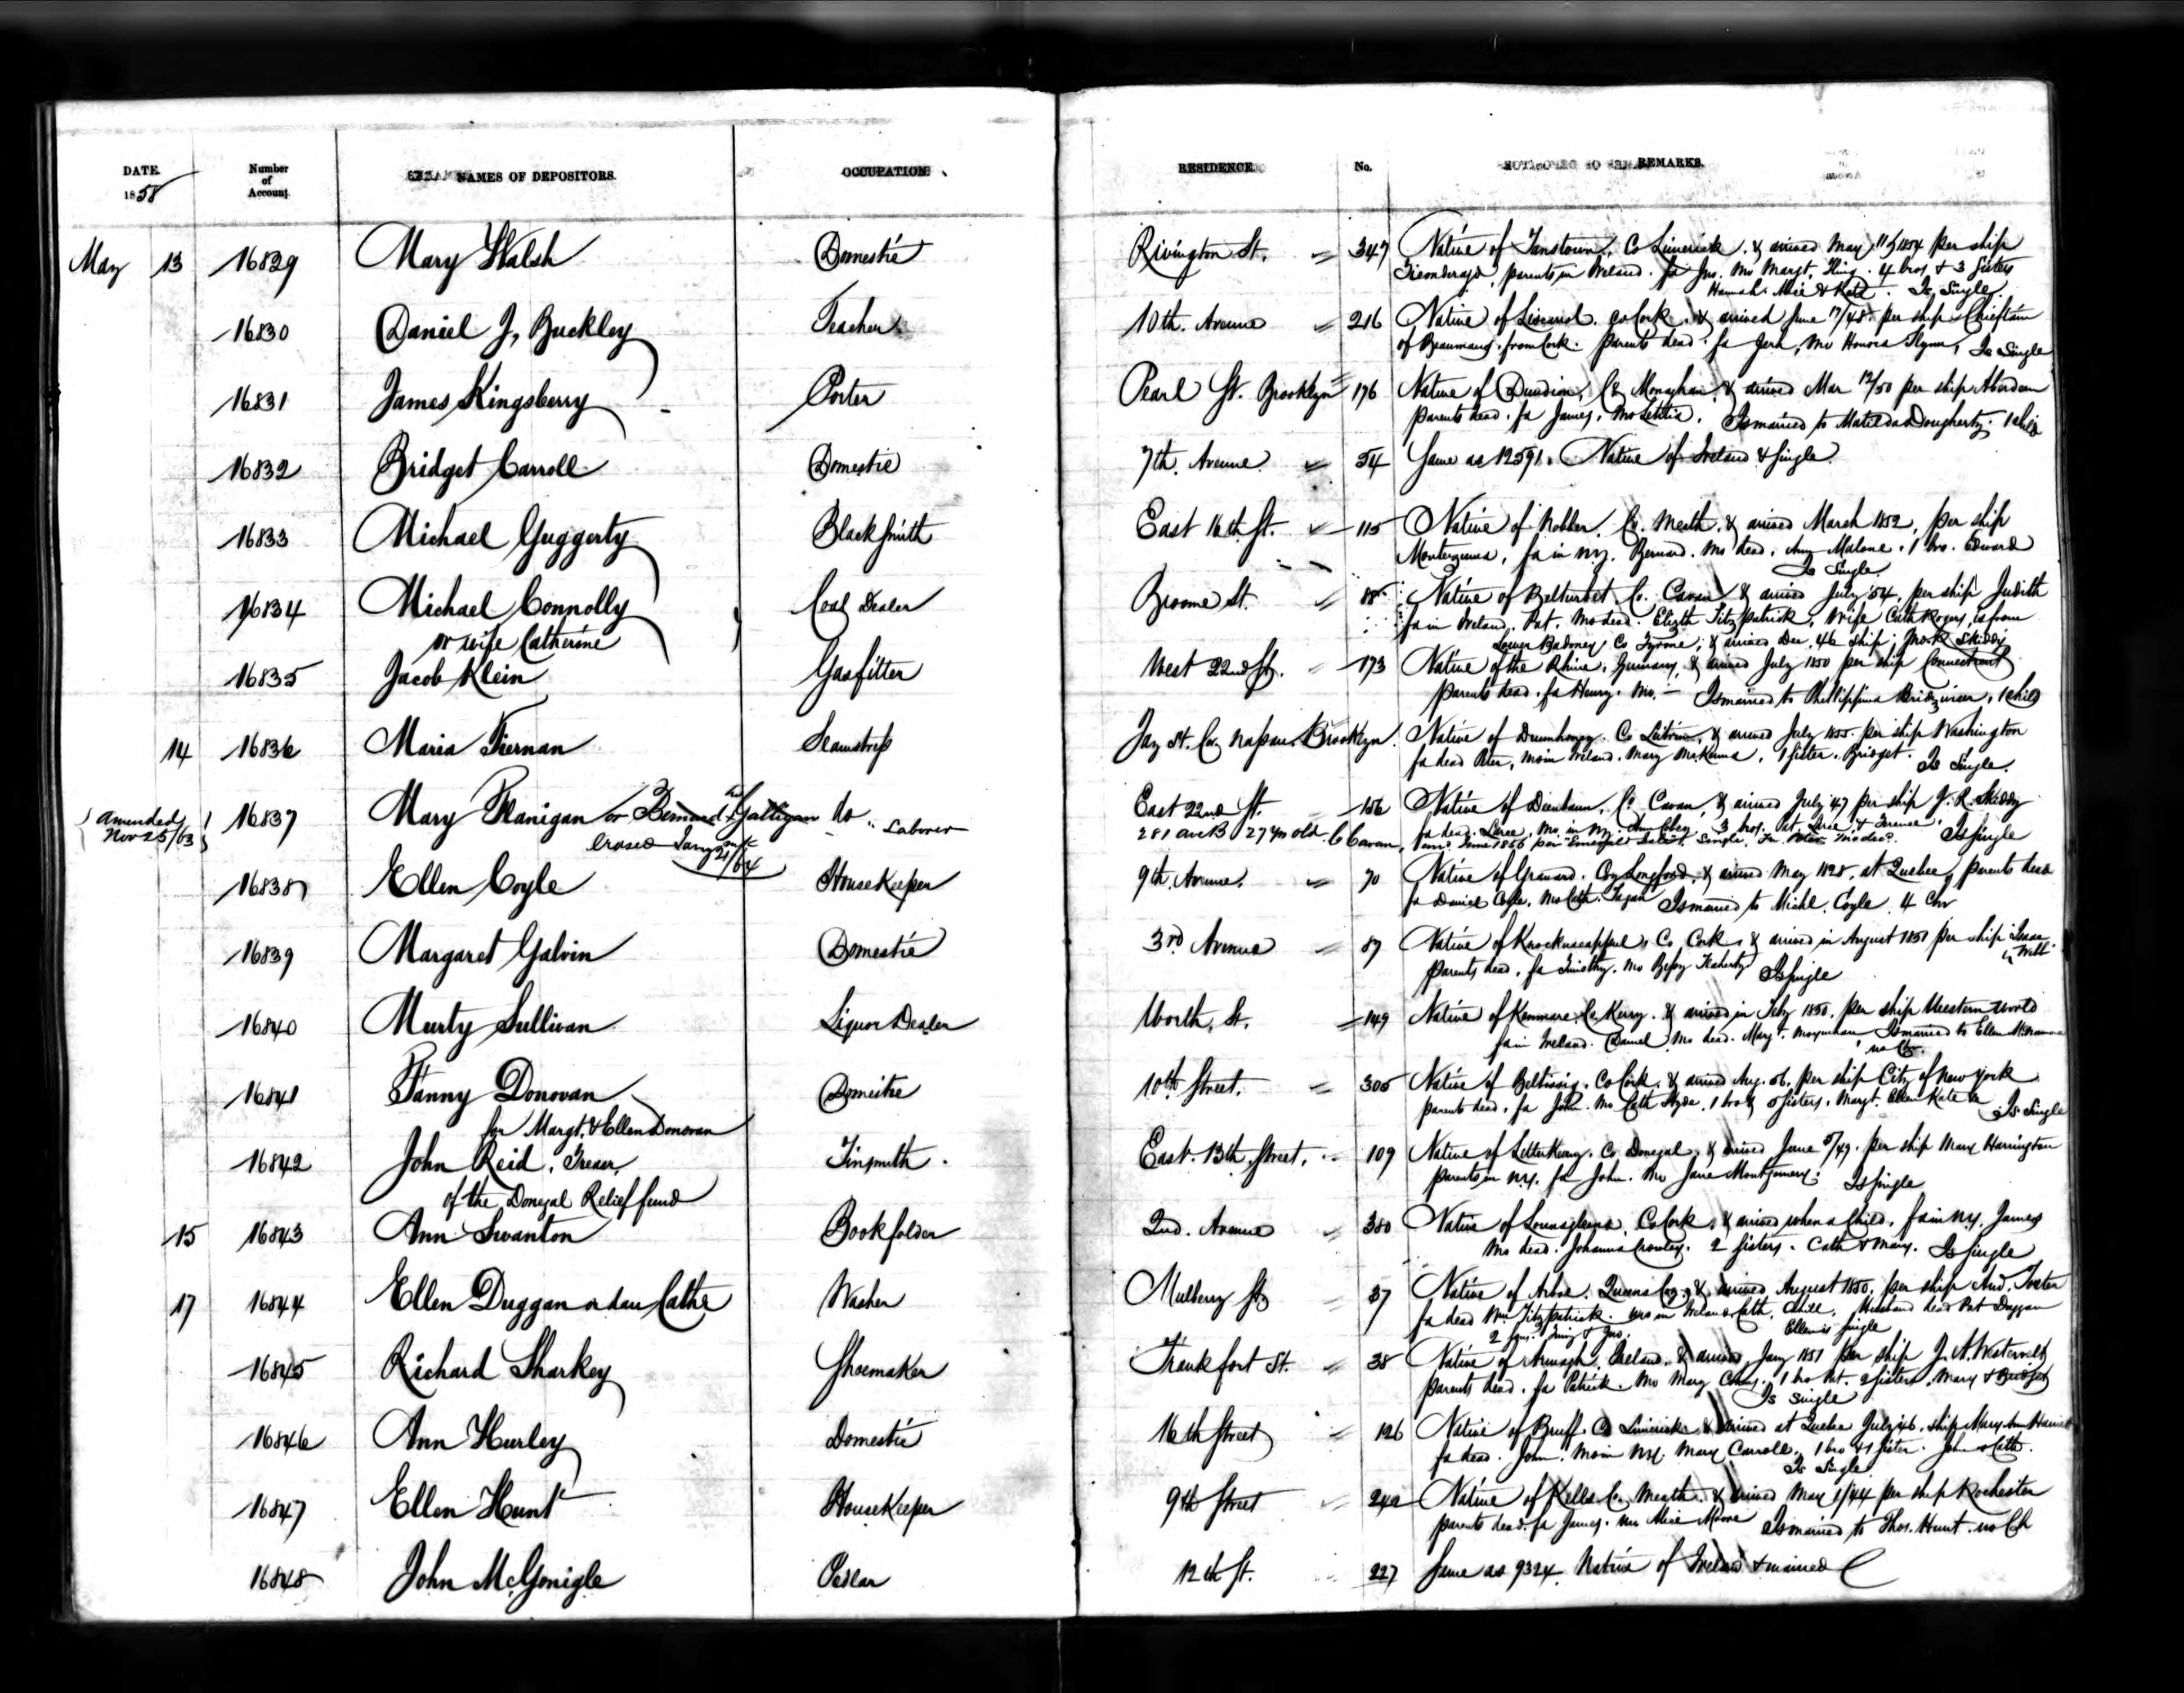 DATE. Number of Account NAMES OF DEPOSITORS. OCCUPATION RESIDENCE No. REMARKS.
1858
May 13 16829 Mary Walsh Domestic Rivington St. 347 Native of Co Limerick, & arrived May 11/1854 per ship
Ticonderoga, parents in Ireland. fa Jno. Mo Margt. King. 4 bros & 3 sisters
Hannah Alice & Kate. Is Single
16830 Daniel J. Buckley Teacher 10th. Avenue 216 Native of Liscarrol. co Cork. & arrived June 17/48. per ship Chieftain
of from Cork. parents dead. fa Jerh, Mo Honora Flynn, Is Single
16831 James Kingsberry Porter Pearl St. Brooklyn 176 Native of Co Monaghan, & arrived Mar 12/50 per ship Aberdeen
parents dead. fa James, Mo Letitia. Is married to Matilda Dougherty. 1 child
16832 Bridget Carroll Domestic 7th. Avenue 54 Same as 12591. Native of Ireland & single.
16833 Michael Guggerty Black Smith East 16th St. 115 Native of Nobber. Co. Meath. & arrived March 1852, per ship
Montezuma, fa in N.Y. Bernard. Mo dead. Ann Malone. 1 bro. Edward
Is Single
16834 Michael Connolly Coal Dealer Broome St. 88 Native of Belturbet Co. Cavan & arrived July 54, per ship Judith
or wife Catherine fa in Ireland, Pat. Mo dead. Elizth Fitzpatrick, Wife Cath Rogers, is from
Lower Badoney Co Tyrone, & arrived Dec. 46 ship Skiddy
16835 Jacob Klein Gasfitter West 22nd St. 173 Native of the Rhine, Germany, & arrived July 1850 per ship Connecticut
parents dead. fa Henry. Mo. — Is married to Phillippina 1 child
14 16836 Maria Tiernan Seamstress Jay St. Cor Nassau. Brooklyn. Native of Co Leitrim, & arrived July 1855. per ship Washington
fa dead Peter, Mo in Ireland. Mary McKenna. 1 sister. Bridget. Is Single.
Amended Nov 25/63 16837 Mary Flanigan or Bernard Galligan do " Laborer East 22nd St. 156 Native of Co. Cavan, & arrived July 47 per ship J. R. Skiddy
281 Ave B 27 yrs old. Co Cavan, fa dead. Mo. in N.Y. Ann 3 bros. Pat & Terence. Is single
Erased Jany 21/64 June 1856 per Single.
16838 Ellen Coyle House Keeper 9th. Avenue. 70 Native of Granard. Coy Longford, & arrived May 1828, at Quebec, parents dead
fa Daniel Coyle. Mo Cath. Fagan Is married to Michl. Coyle. 4 Chn
16839 Margaret Galvin Domestic 3rd Avenue 87 Native of Co Cork. & arrived in August 1851 per ship Isaac Webb
parents dead, fa Timothy. Mo Betsy Flaherty Is single
16840 Murty Sullivan Liquor Dealer Worth. St. 149 Native of Kenmare. Co. Kerry. & arrived in Feby 1850, per ship Western World
fa in Ireland. Daniel Mo dead. Mary Moynehan Is married to Ellen
no Chn.
16841 Fanny Donovan Domestic 10th Street. 305 Native of Co Cork. & arrived Aug. 56. per ship City of New York
for Margt. & Ellen Donovan parents dead. fa John. Mo Cath Hyde. 1 bro & 5 sisters. Margt. Ellen Kate Is Single
16842 John Reid, Treasr. Tinsmith. East. 13th. Street. 109 Native of Letterkenny. Co Donegal. & arrived June 5/49. per ship Mary Harrington
of the Donegal Relief fund parents in N.Y. fa John. Mo Jane Montgomery. Is single
15 16843 Ann Swanton Book folder 2nd. Avenue 380 Native of Co Cork, & arrived when a Child. fa in N.Y. James
Mo dead. Johanna Crowley. 2 sisters. Cath & Mary. Is single
17 16844 Ellen Duggan or dau Cathe Washer Mulberry St. 37 Native of Queens Coy. & arrived August 1850. per ship And. Foster
fa dead Wm Fitzpatrick. Mo in Ireland Cath. Husband dead Pat Duggan
Ellen is single
16845 Richard Sharkey Shoemaker Frankfort St. 38 Native of Armagh. Ireland. & arrived Jany 1851 per ship J. A. Westervelt
parents dead. fa Patrick. Mo Mary 1 bro Pat. 2 sisters. Mary & Bridget
Is Single
16846 Ann Hurley Domestic 16th Street 126 Native of Bruff. Co Limerick & arrived at Quebec July 46. ship Mary Ann
fa dead. John. Mo in N.Y. Mary Carroll. 1 bro & 1 sister. John & Cath.
Is Single
16847 Ellen Hunt House Keeper 9th Street 242 Native of Kells Co. Meath. & arrived May 1/44 per ship Rochester
parents dead. fa James. Mo Alice Moore Is married to Thos. Hunt. no Ch
16848 John McGonigle Pedlar 12th St. 227 Same as 9324. Native of Ireland & married